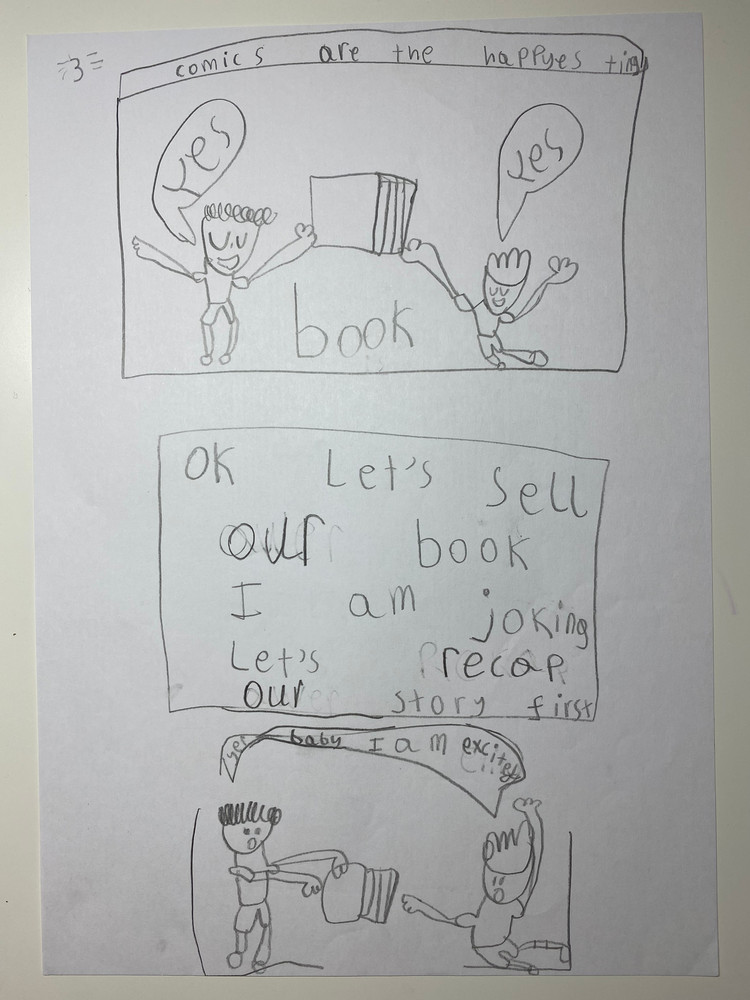 3
comics are the happyes ting
yes
yes
book
OK Let's sell
our book
I am joking
Let's recap
our story first
yes baby I am excited